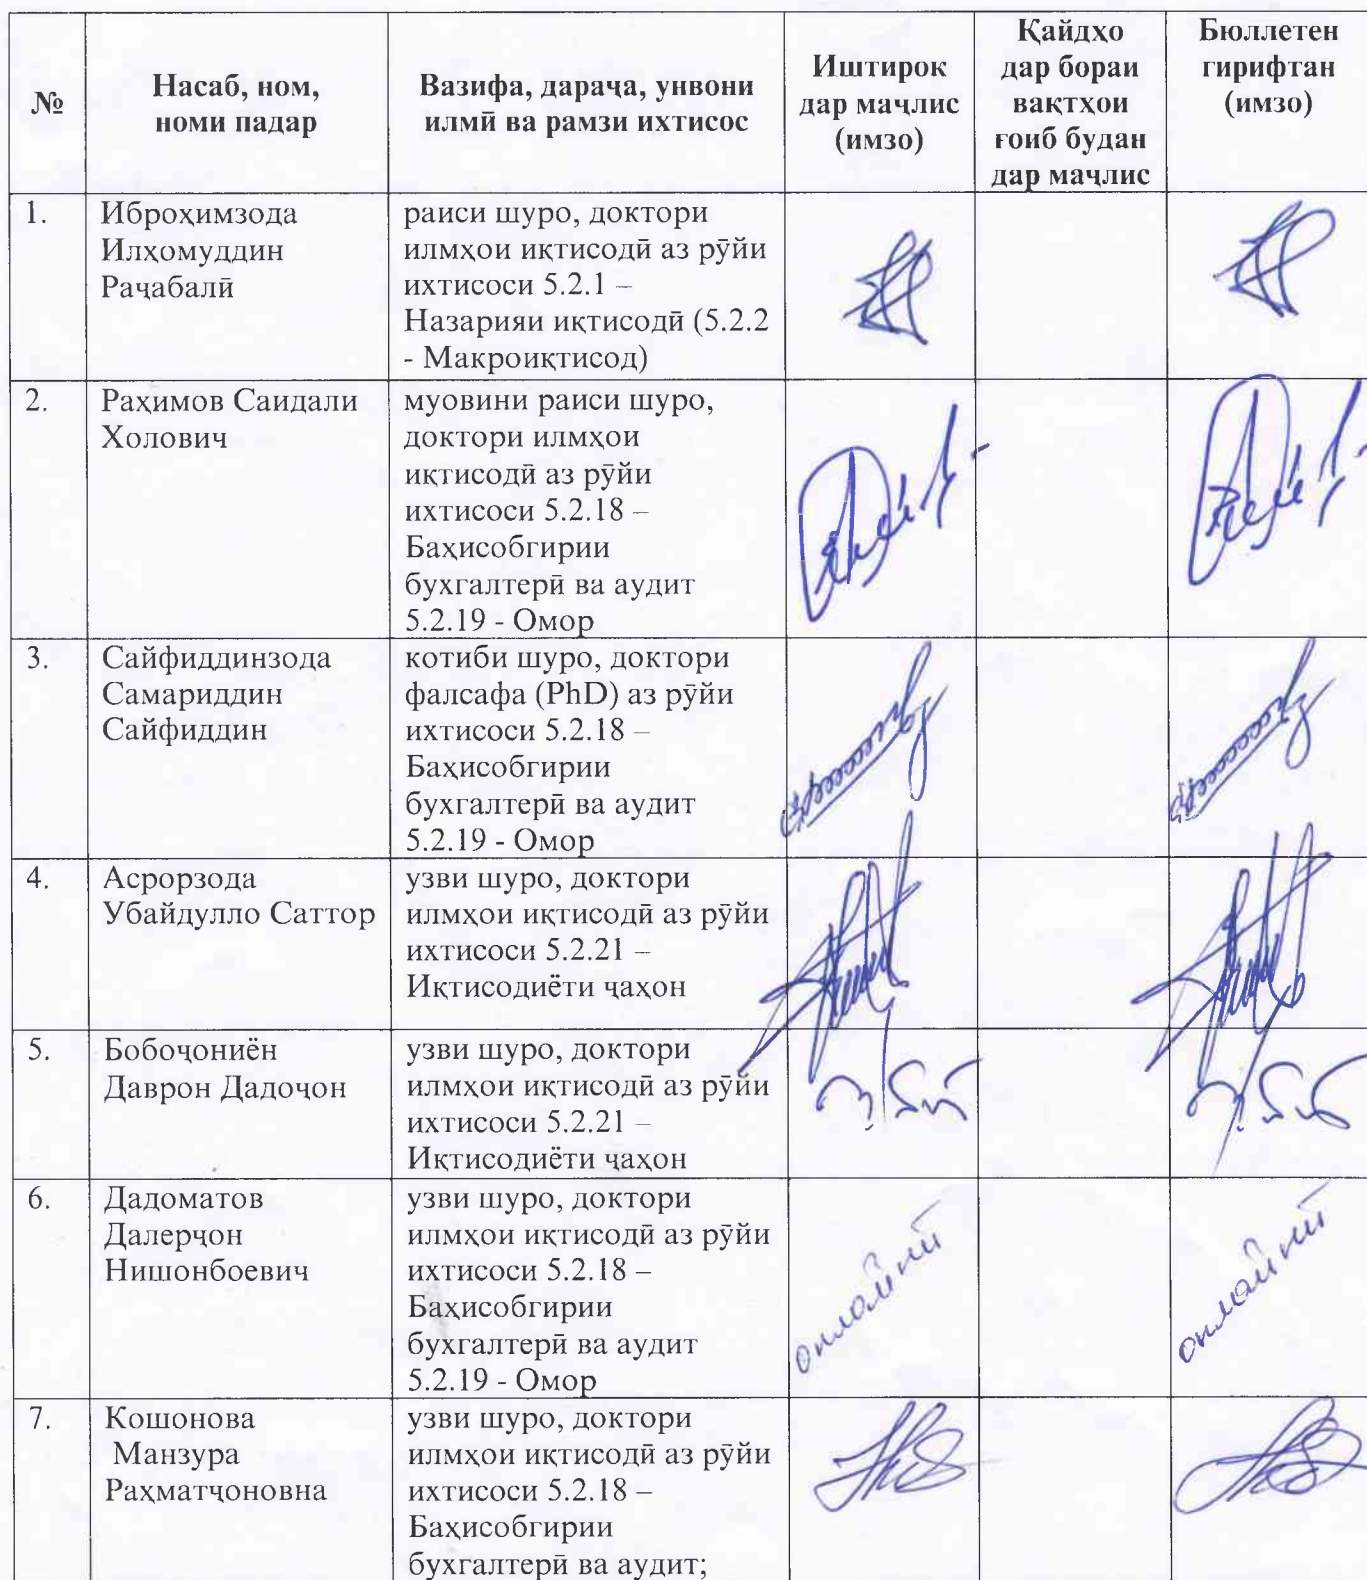 №
Насаб, ном,
номи падар
Вазифа, дараҷа, унвони
илмӣ ва рамзи ихтисос
Иштирок
дар маҷлис
(имзо)
Қайдҳо
дар бораи
вақтҳои
ғоиб будан
дар маҷлис
Бюллетен
гирифтан
(имзо)
1.
Иброҳимзода
Илҳомуддин
Раҷабалӣ
раиси шуро, доктори
илмҳои иқтисодӣ аз рӯйи
ихтисоси 5.2.1 –
Назарияи иқтисодӣ (5.2.2
- Макроиқтисод)
2.
Раҳимов Саидали
Холович
муовини раиси шуро,
доктори илмҳои
иқтисодӣ аз рӯйи
ихтисоси 5.2.18 –
Баҳисобгирии
бухгалтерӣ ва аудит
5.2.19 - Омор
3.
Сайфиддинзода
Самариддин
Сайфиддин
котиби шуро, доктори
фалсафа (PhD) аз рӯйи
ихтисоси 5.2.18 –
Баҳисобгирии
бухгалтерӣ ва аудит
5.2.19 - Омор
4.
Асрорзода
Убайдулло Саттор
узви шуро, доктори
илмҳои иқтисодӣ аз рӯйи
ихтисоси 5.2.21 –
Иқтисодиёти ҷаҳон
5.
Бобоҷониён
Даврон Дадоҷон
узви шуро, доктори
илмҳои иқтисодӣ аз рӯйи
ихтисоси 5.2.21 –
Иқтисодиёти ҷаҳон
6.
Дадоматов
Далерҷон
Нишонбоевич
узви шуро, доктори
илмҳои иқтисодӣ аз рӯйи
ихтисоси 5.2.18 –
Баҳисобгирии
бухгалтерӣ ва аудит
5.2.19 - Омор
онлайнӣ
онлайнӣ
7.
Кошонова
Манзура
Раҳматҷоновна
узви шуро, доктори
илмҳои иқтисодӣ аз рӯйи
ихтисоси 5.2.18 –
Баҳисобгирии
бухгалтерӣ ва аудит;